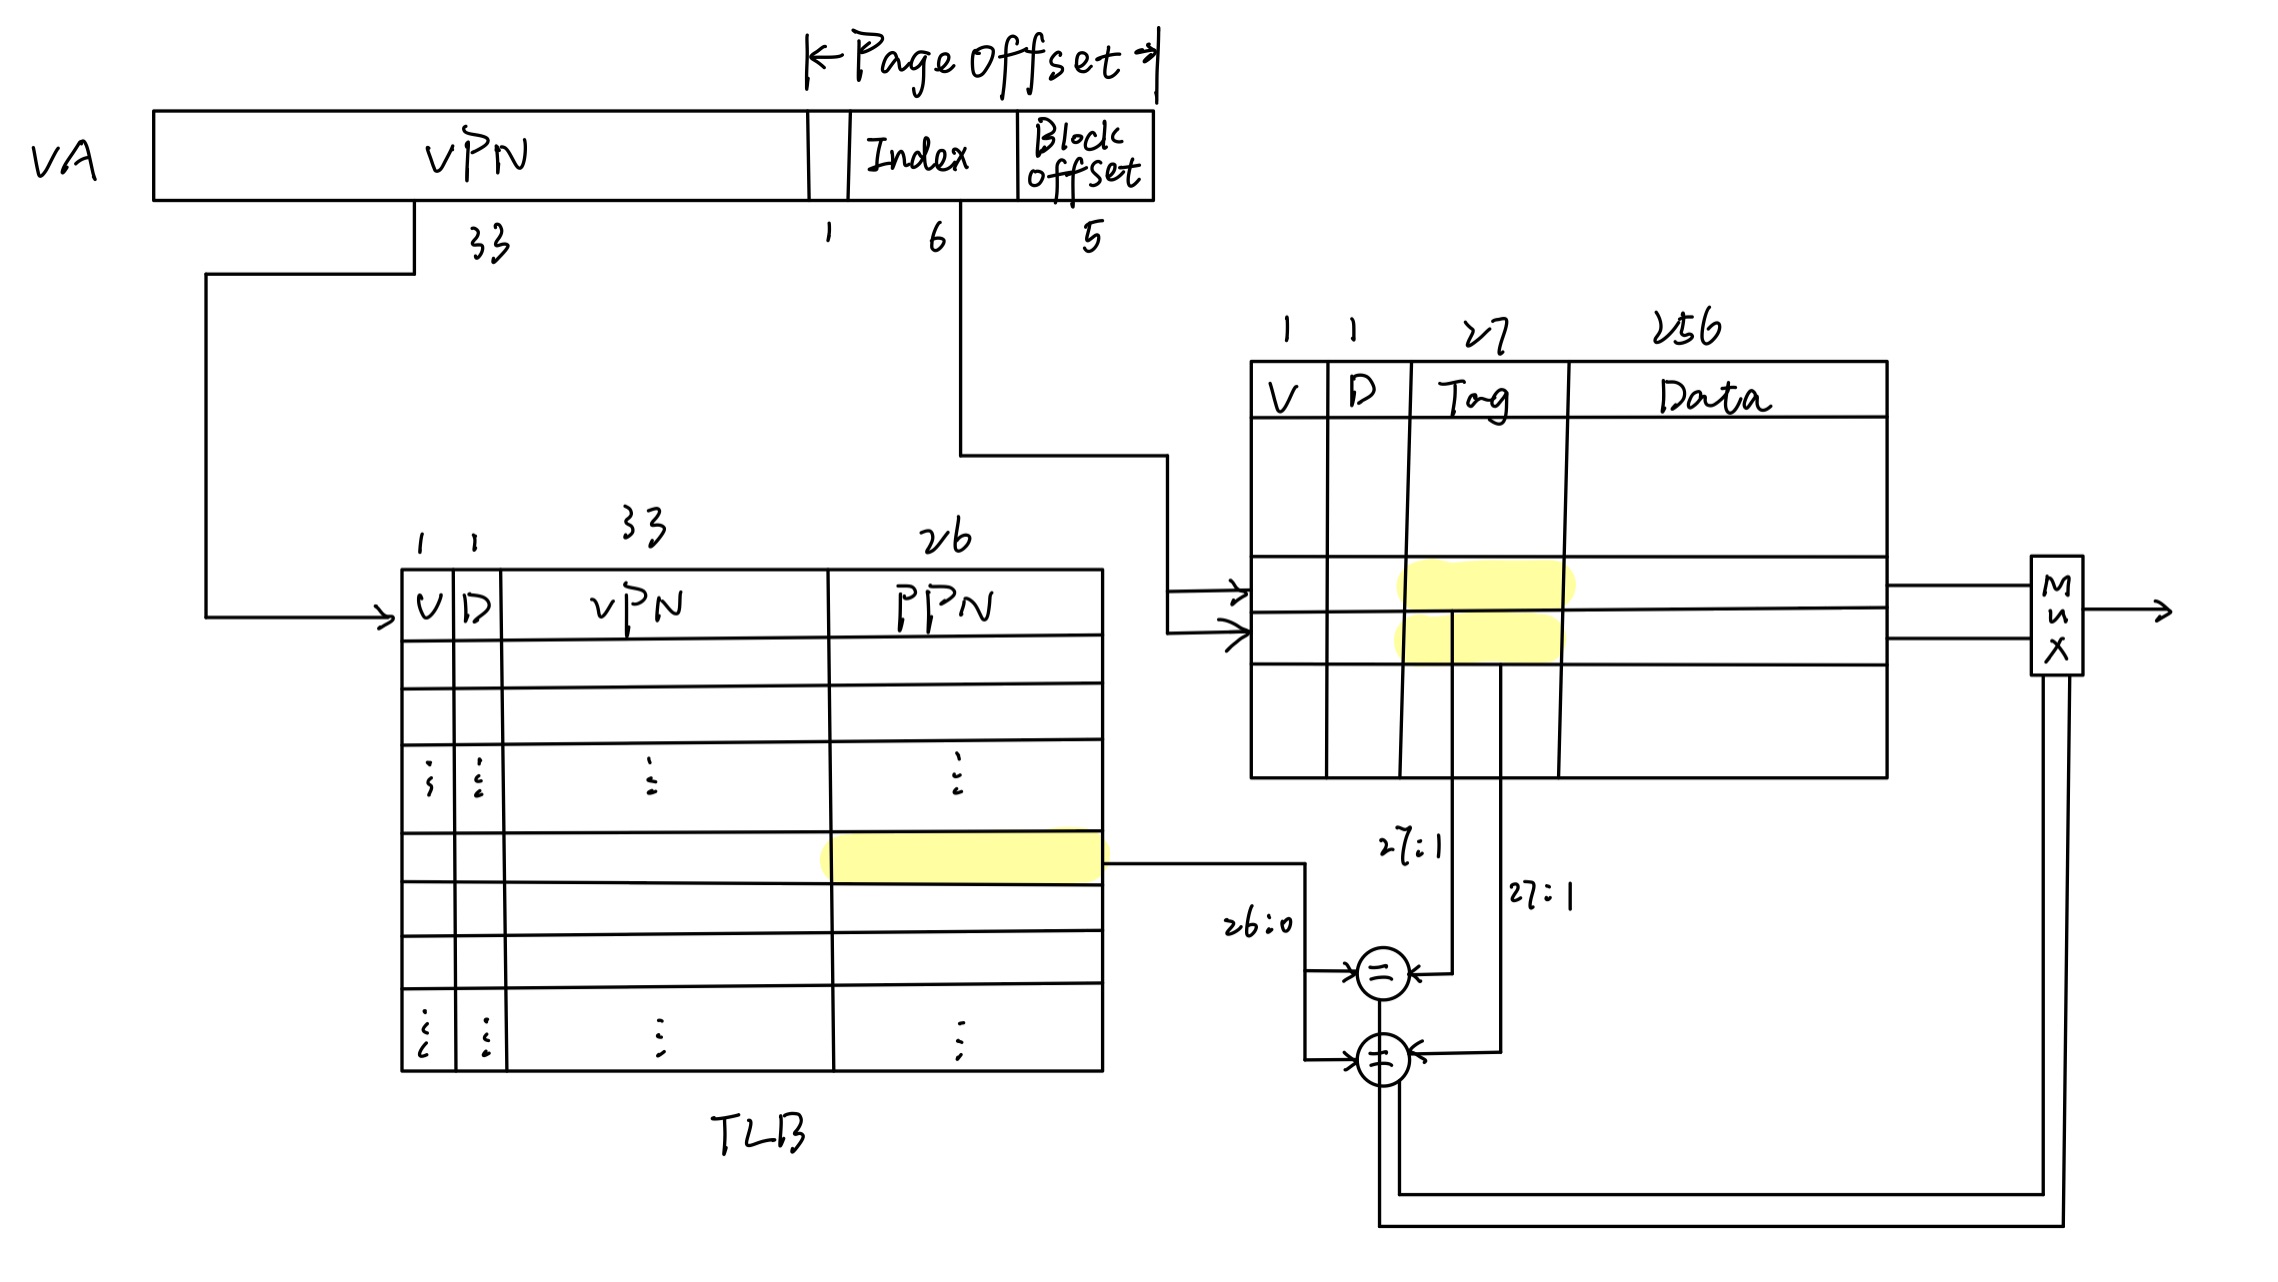 Page Offset
VA VPN Index Block offset
33 1 6 5
1 1 27 256
V D Tag Data
1 1 33 26
V D VPN PPN
Mux
27:1
27:1
26:0
=
=
TLB